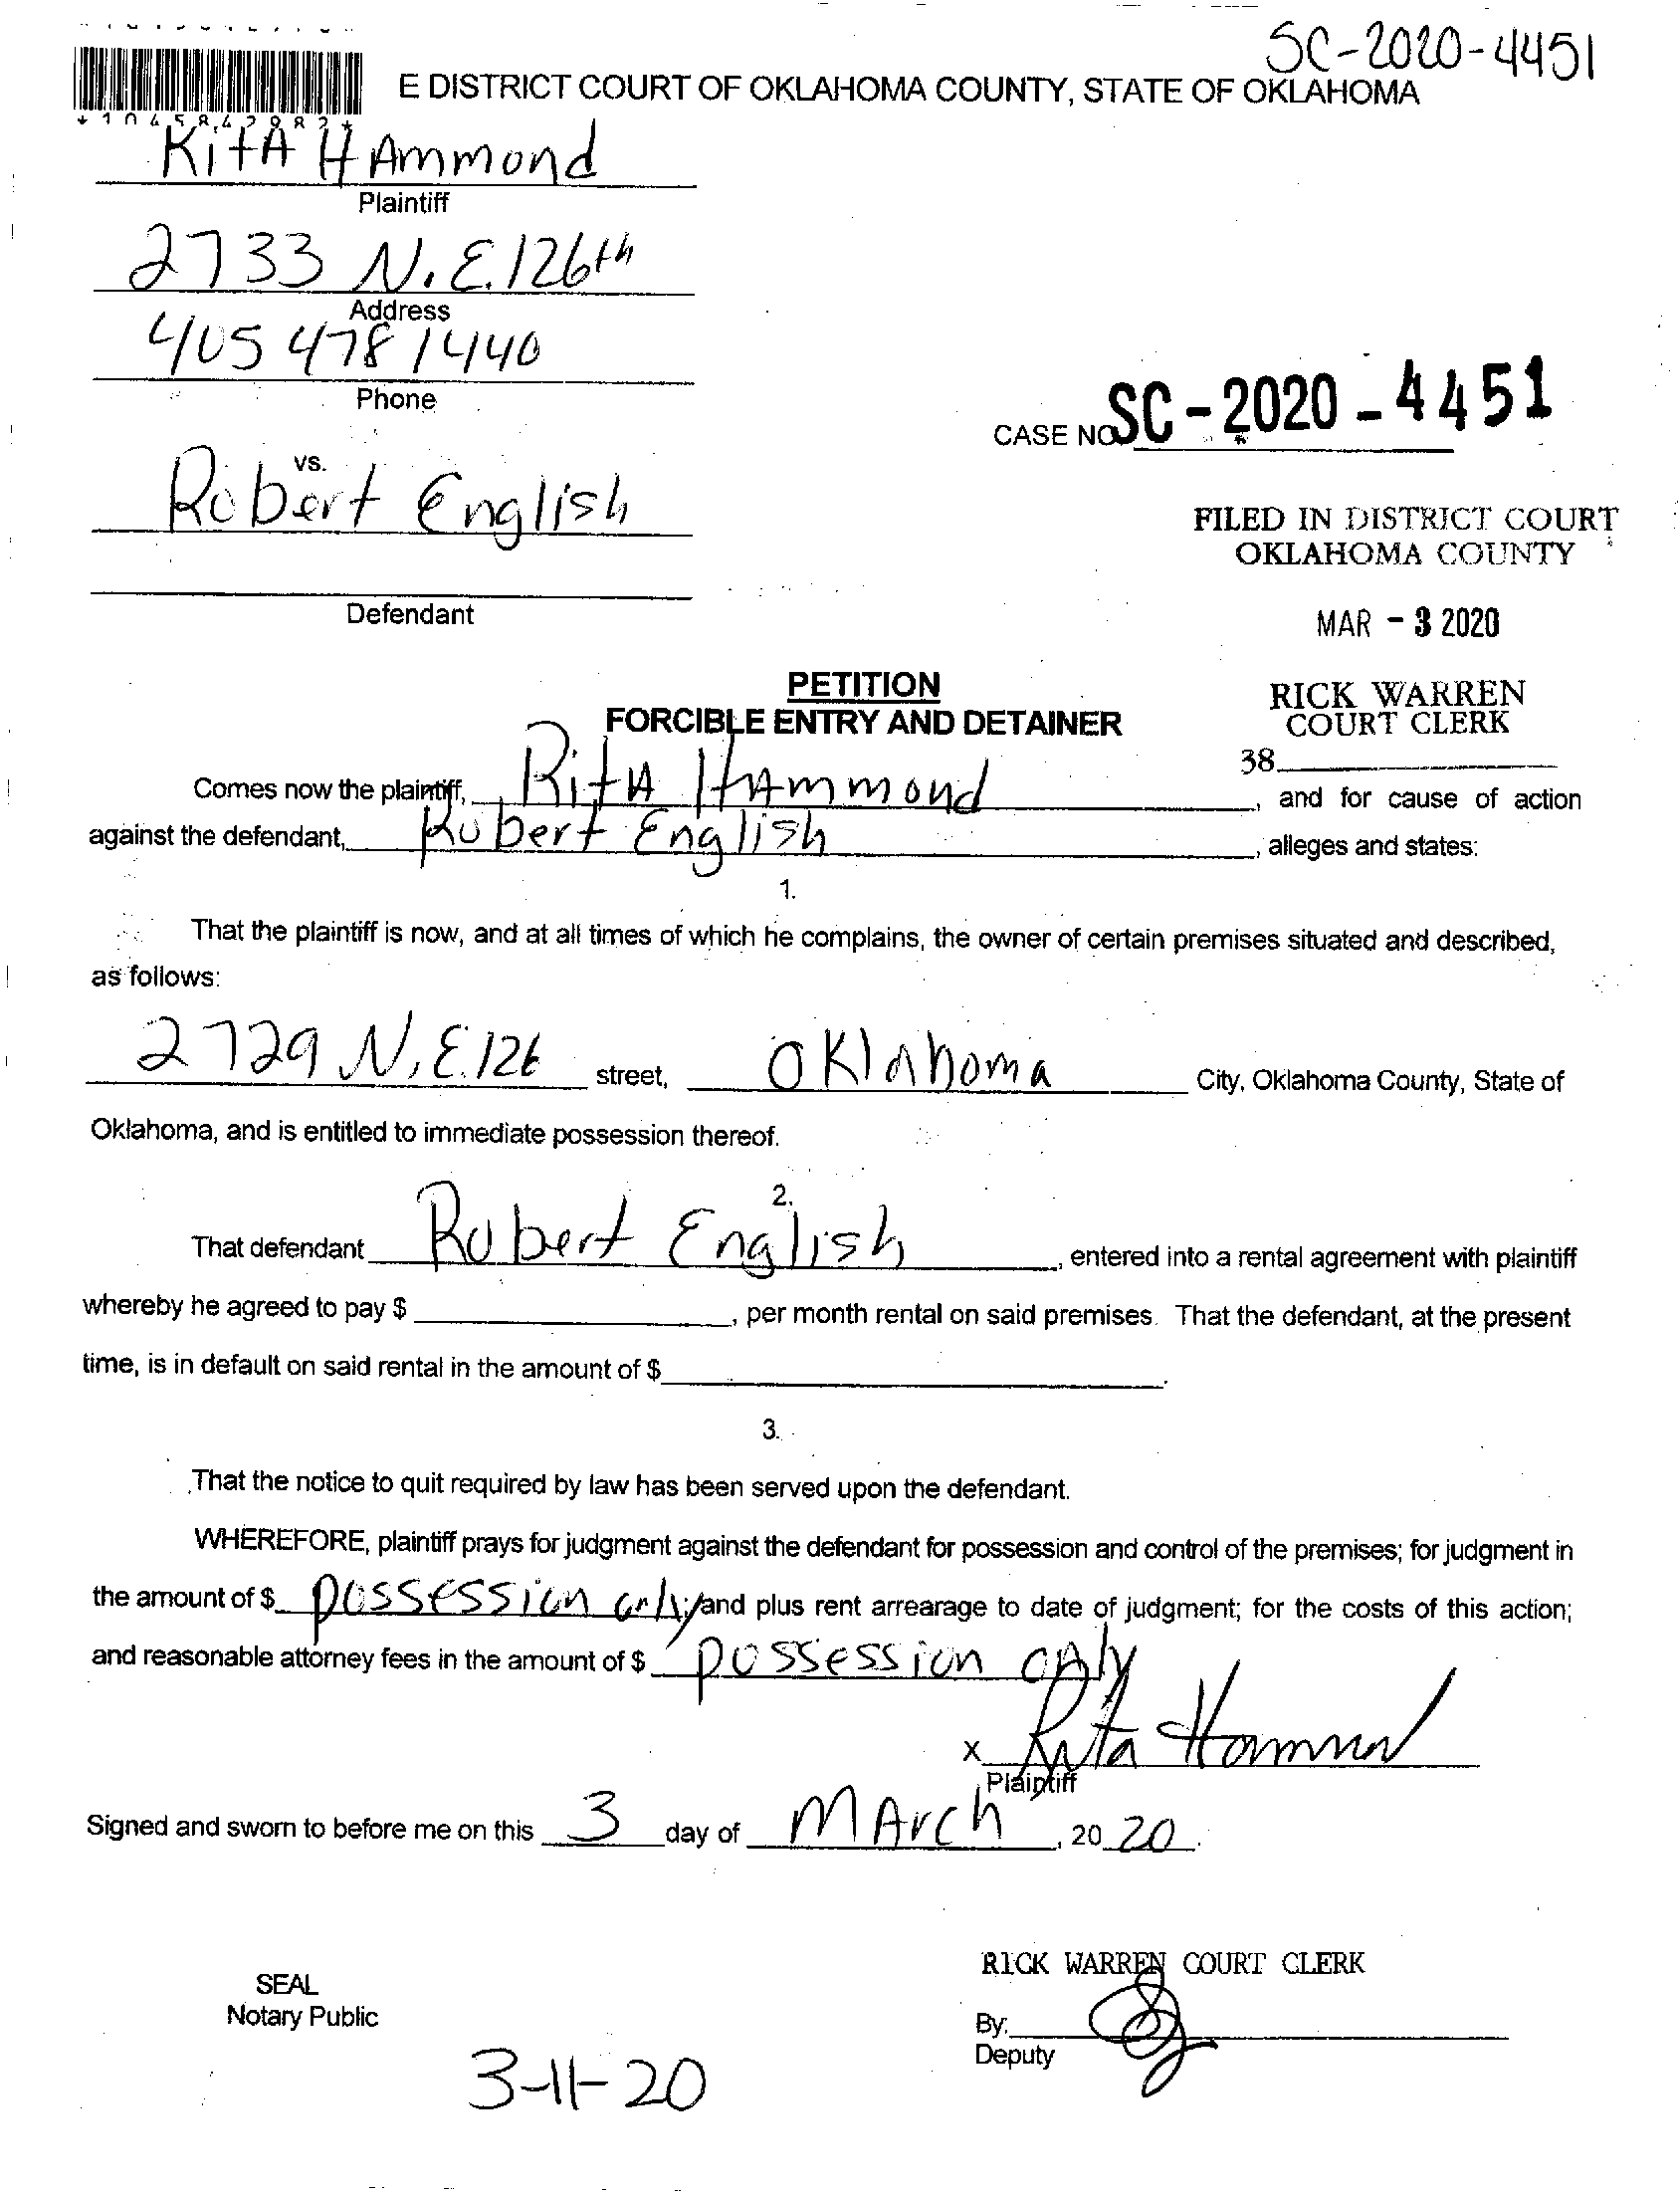 SC-2020-4451
E DISTRICT COURT OF OKLAHOMA COUNTY, STATE OF OKLAHOMA
RitA HAmmond
Plaintiff
2733 N.E. 126th
Address
405 478 1440
Phone
CASE NO. SC-2020-4451
vs.
Robert English
FILED IN DISTRICT COURT
OKLAHOMA COUNTY
Defendant
MAR - 3 2020
PETITION
FORCIBLE ENTRY AND DETAINER
RICK WARREN
COURT CLERK
38
Comes now the plaintiff, RitA HAmmond, and for cause of action
against the defendant, Robert English, alleges and states:
1.
That the plaintiff is now, and at all times of which he complains, the owner of certain premises situated and described,
as follows:
2729 N.E. 126 street, OKlAhomA City, Oklahoma County, State of
Oklahoma, and is entitled to immediate possession thereof.
2.
That defendant Robert English, entered into a rental agreement with plaintiff
whereby he agreed to pay $ , per month rental on said premises. That the defendant, at the present
time, is in default on said rental in the amount of $ .
3.
That the notice to quit required by law has been served upon the defendant.
WHEREFORE, plaintiff prays for judgment against the defendant for possession and control of the premises; for judgment in
the amount of $ possession only and plus rent arrearage to date of judgment; for the costs of this action;
and reasonable attorney fees in the amount of $ possession only
x Rita Hammond
Plaintiff
Signed and sworn to before me on this 3 day of MArch, 2020.
RICK WARREN COURT CLERK
SEAL
Notary Public
By:
Deputy
3-11-20